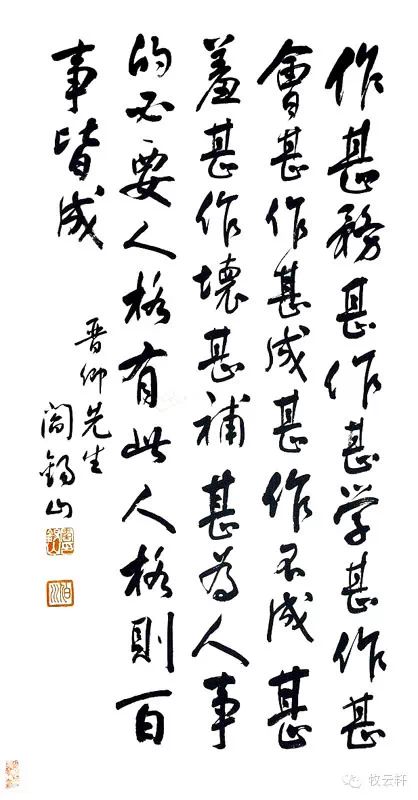 作甚務甚作甚学甚作甚
會甚作甚成甚作不成甚
羞甚作壞甚補甚為人事
的必要人格有此人格則百
事皆成
晋卿先生
閻錫山
牧云轩